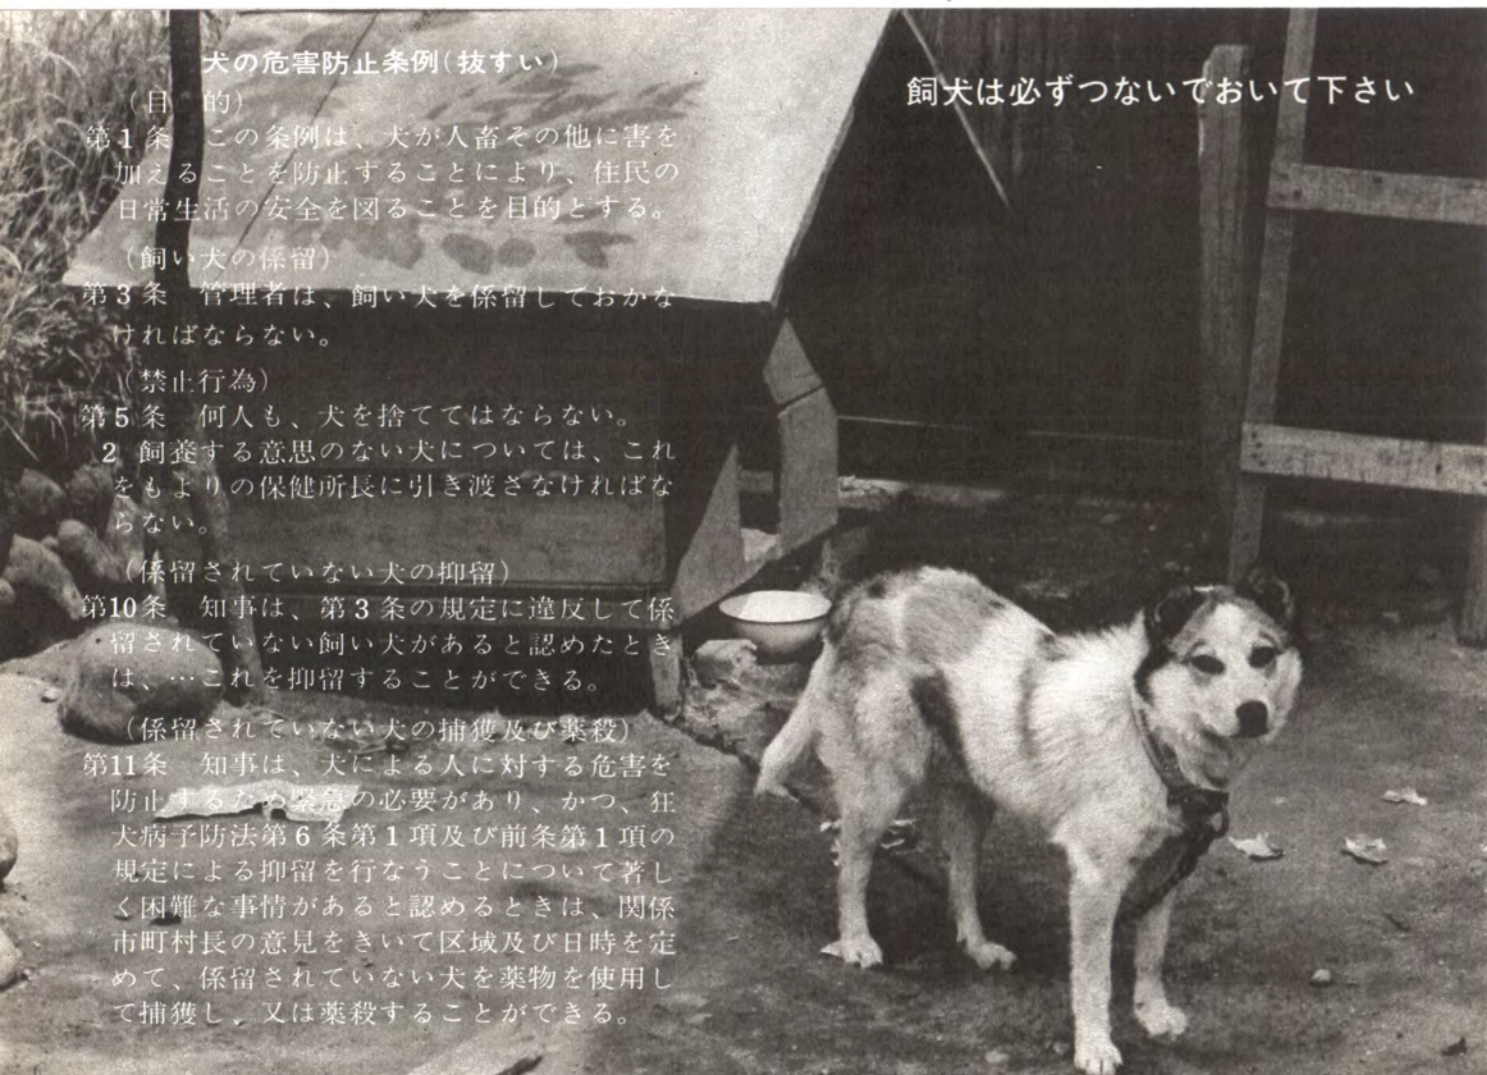 犬の危害防止条例(抜すい)
(目　的)
第1条　この条例は、犬が人畜その他に害を
加えることを防止することにより、住民の
日常生活の安全を図ることを目的とする。
(飼い犬の係留)
第3条　管理者は、飼い犬を係留しておかな
ければならない。
(禁止行為)
第5条　何人も、犬を捨ててはならない。
2　飼養する意思のない犬については、これ
をもよりの保健所長に引き渡さなければな
らない。
(係留されていない犬の抑留)
第10条　知事は、第3条の規定に違反して係
留されていない飼い犬があると認めたとき
は、…これを抑留することができる。
(係留されていない犬の捕獲及び薬殺)
第11条　知事は、犬による人に対する危害を
防止するため緊急の必要があり、かつ、狂
犬病予防法第6条第1項及び前条第1項の
規定による抑留を行なうことについて著し
く困難な事情があると認めるときは、関係
市町村長の意見をきいて区域及び日時を定
めて、係留されていない犬を薬物を使用し
て捕獲し、又は薬殺することができる。
飼犬は必ずつないでおいて下さい